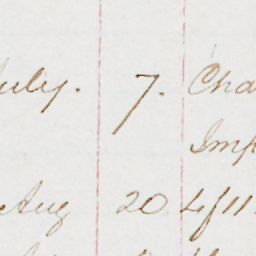 July. 7. Cha
Imp
Aug 20 4/11